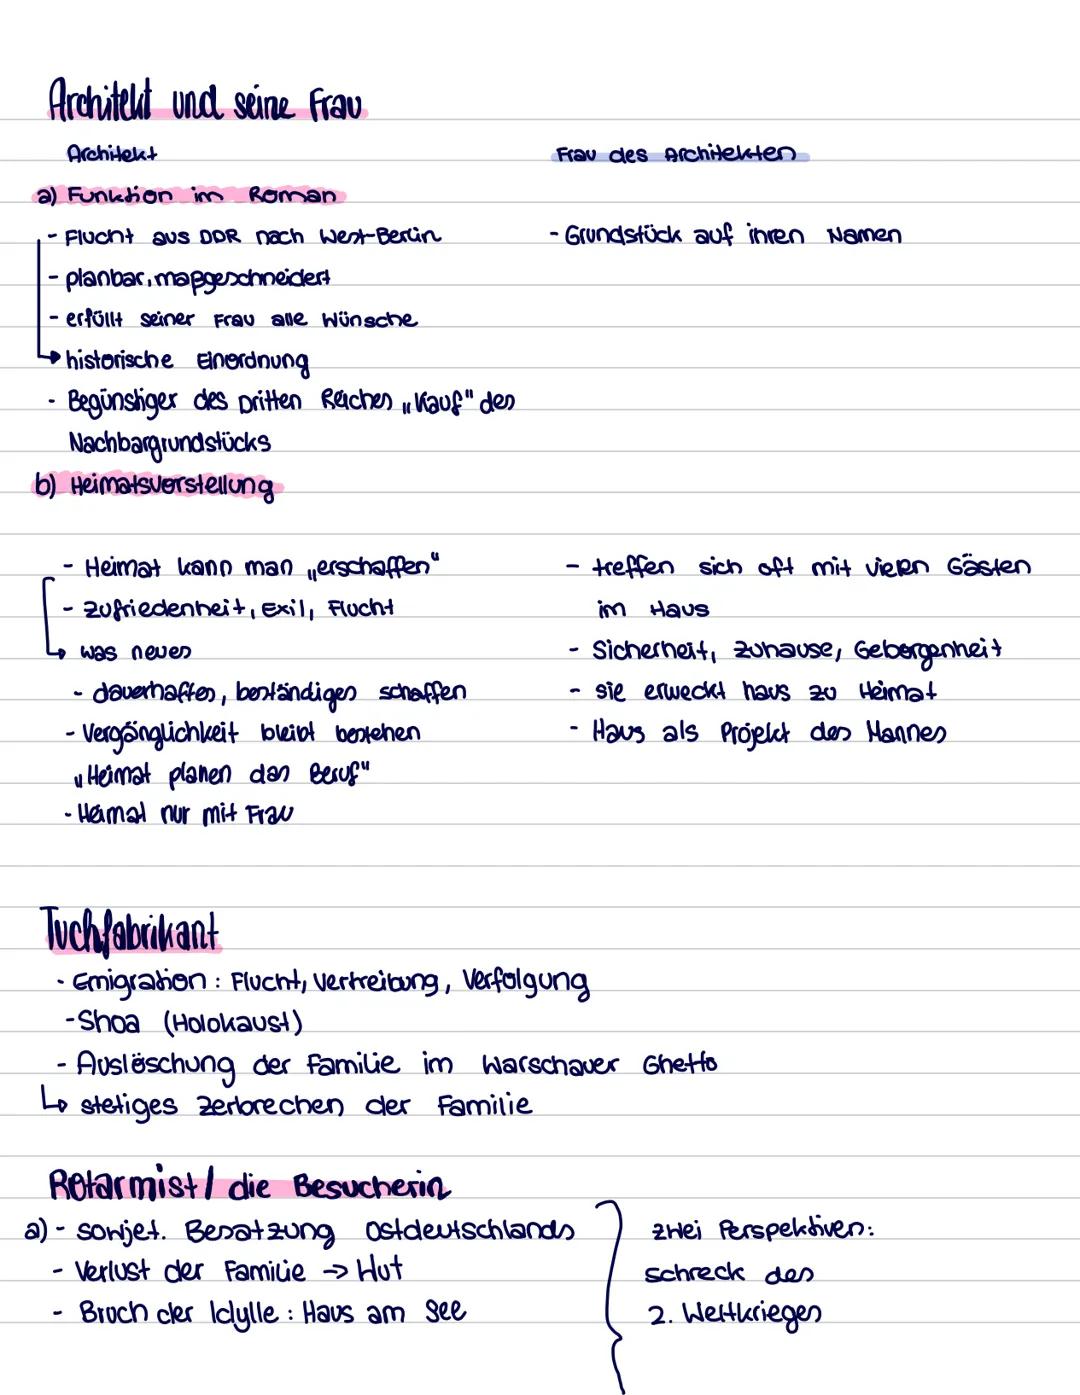 Architekt und seine Frau
Architekt
Frau des Architekten
a) Funktion im Roman
- Flucht aus DDR nach West-Berlin
- Grundstück auf ihren Namen
- planbar, maßgeschneidert
- erfüllt seiner Frau alle Wünsche
↳ historische Einordnung
- Begünstiger des Dritten Reiches „Kauf" des
Nachbargrundstücks
b) Heimatsvorstellung
- Heimat kann man „erschaffen"
- Zufriedenheit, Exil, Flucht
↳ was neues
- dauerhaftes, beständiges schaffen
- Vergänglichkeit bleibt bestehen
„Heimat planen das Beruf"
- Heimat nur mit Frau
- treffen sich oft mit vielen Gästen
im Haus
- Sicherheit, zuhause, Geborgenheit
- sie erweckt haus zu Heimat
- Haus als Projekt des Mannes
Tuchfabrikant
- Emigration : Flucht, Vertreibung, Verfolgung
- Shoa (Holokaust)
- Auslöschung der Familie im Warschauer Ghetto
↳ stetiges zerbrechen der Familie
Rotarmist / die Besucherin
a) - sowjet. Besatzung Ostdeutschlands
- Verlust der Familie → Hut
- Bruch der Idylle : Haus am See
zwei Perspektiven:
schreck des
2. Weltkrieges